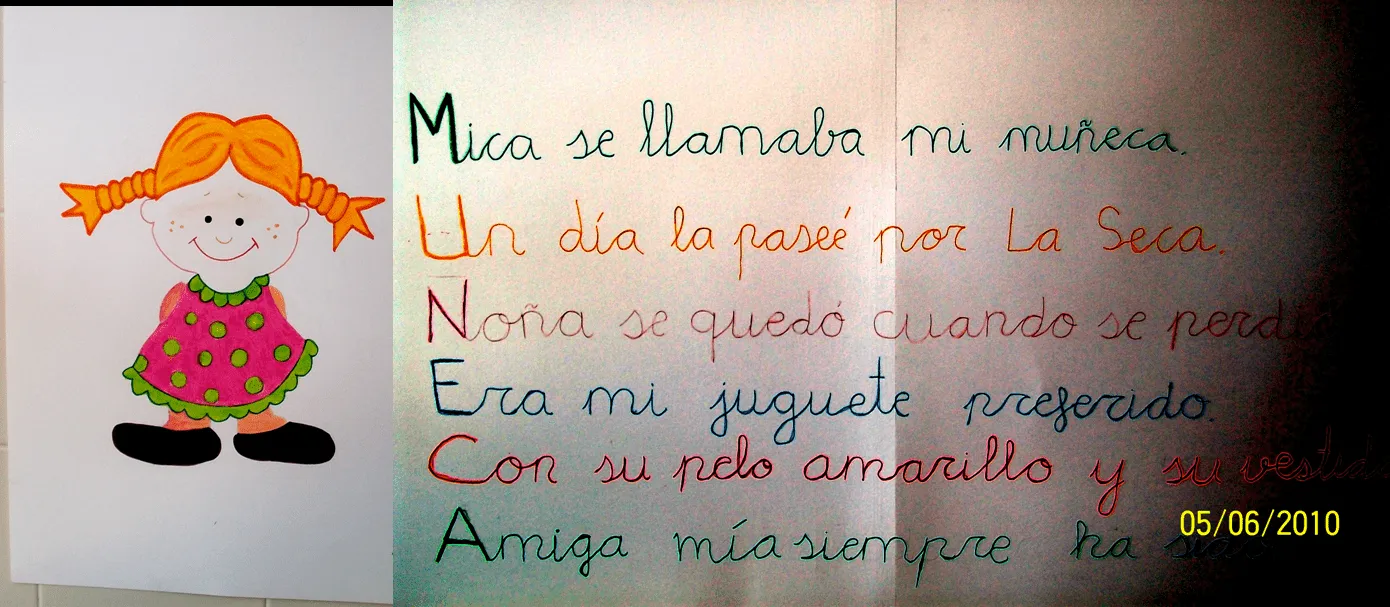 Mica se llamaba mi muñeca.
Un día la paseé por La Seca.
Noña se quedó cuando se perdió
Era mi juguete preferido.
Con su pelo amarillo y su vestido
Amiga mía siempre ha sido
05/06/2010